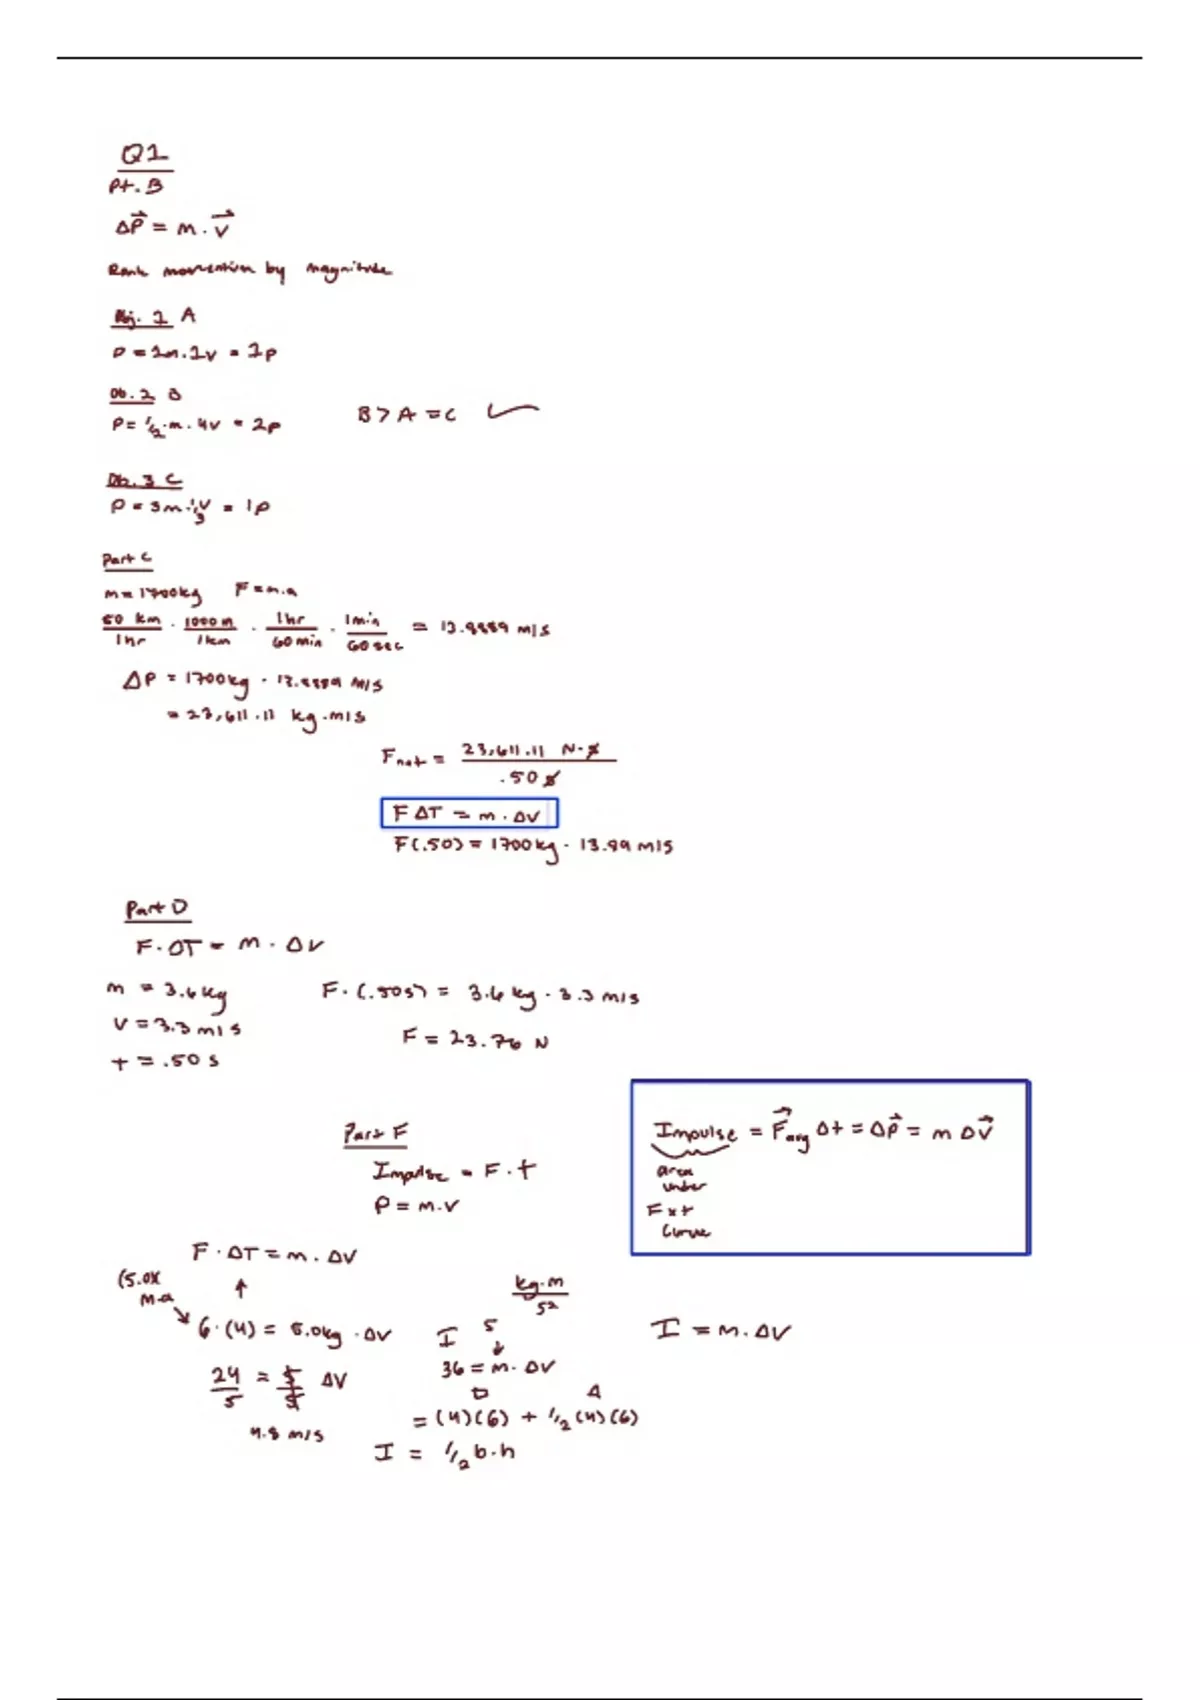 Q1
Pt. B
ΔP⃗ = m · v⃗
Rank momentum by magnitude
Obj. 1 A
P = 1m · 1v = 1p
Ob. 2 B
P = 1/2 · m · 4v = 2p
B > A = C ✓
Ob. 3 C
P = 3m · 1/3 v = 1p
Part C
m = 1700kg F = m.a
50 km/1hr · 1000m/1km · 1hr/60min · 1min/60sec = 13.8889 m/s
ΔP = 1700kg · 13.8889 m/s
= 23,611.11 kg·m/s
Fnet = 23,611.11 N·s / .50 s
F ΔT = m · ΔV
F(.50) = 1700kg · 13.89 m/s
Part D
F · ΔT = m · ΔV
m = 3.6kg F · (.50s) = 3.6 kg · 3.3 m/s
V = 3.3 m/s F = 23.76 N
t = .50 s
Part F
Impulse = F · t
P = m.v
Impulse = F⃗avg Δt = ΔP⃗ = m ΔV⃗
area
under
F x t
curve
F · ΔT = m · ΔV
(5.0)(
m·a
6 · (4) = 5.0kg · ΔV
24/5 = 5/5 ΔV
4.8 m/s
kg·m/s²
I 5
36 = m · ΔV
□ Δ
= (4)(6) + 1/2 (4)(6)
I = 1/2 b·h
I = m · ΔV